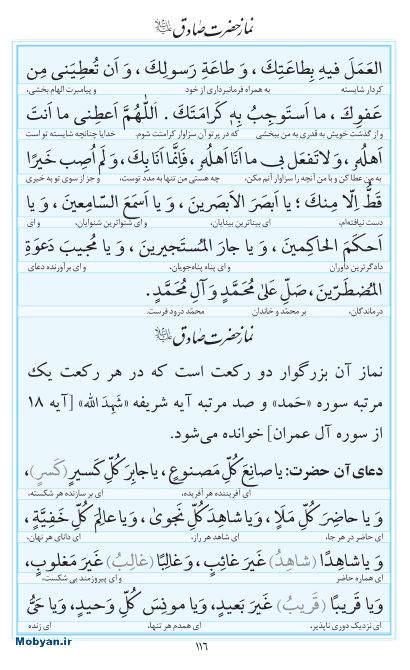 نماز حضرت صادق علیه‌السلام
العَمَلَ فيهِ بِطاعَتِكَ، وَ طاعَةِ رَسولِكَ، وَ اَن تُعطِيَني مِن
کردار شایسته به همراه فرمانبرداری از خود و پیامبرت الهام بخشی،
عَفوِكَ، ما اَستَوجِبُ بِهِ كَرامَتَكَ. اَللّٰهُمَّ اَعطِني ما اَنتَ
و از گذشت خویش به قدری به من ببخشی که در پرتو آن سزاوار کرامتت شوم. خدایا چنانچه شایسته تو است
اَهلُهُ، وَ لا تَفعَل بي ما اَنَا اَهلُهُ، فَاِنَّما اَنَا بِكَ، وَ لَم اُصِب خَيرًا
به من عطا کن و با من آنچه را سزاوار آنم مکن، چه هستی من تنها به مدد توست، و جز از سوی تو به خیری
قَطُّ اِلّا مِنكَ؛ يا اَبصَرَ الاَبصَرينَ، وَ يا اَسمَعَ السّامِعينَ، وَ يا
دست نیافته‌ام. ای بیناترین بینایان، و ای شنواترین شنوایان، و ای
اَحكَمَ الحاكِمينَ، وَ يا جارَ المُستَجيرينَ، وَ يا مُجيبَ دَعوَةِ
دادگرترین داوران و ای پناه پناه‌جویان، و ای برآورنده دعای
المُضطَرّينَ، صَلِّ عَلىٰ مُحَمَّدٍ وَ آلِ مُحَمَّدٍ.
درماندگان، بر محمّد و خاندان محمّد درود فرست.
نماز حضرت صادق علیه‌السلام
نماز آن بزرگوار دو رکعت است که در هر رکعت یک
مرتبه سوره «حَمد» و صد مرتبه آیه شریفه «شَهِدَ الله» [آیه ۱۸
از سوره آل عمران] خوانده می‌شود.
دعای آن حضرت: يا صانِعَ كُلِّ مَصنوعٍ، يا جابِرَ كُلِّ كَسيرٍ (كَسرٍ)،
ای آفریننده هر آفریده، ای برسازنده هر شکسته،
وَ يا حاضِرَ كُلِّ مَلَاٍ، وَ يا شاهِدَ كُلِّ نَجوىٰ، وَ يا عالِمَ كُلِّ خَفِيَّةٍ،
ای حاضر در هر جا، ای شاهد هر راز، ای دانای هر نهان،
وَ يا شاهِدًا (شاهِدُ) غَيرَ غائِبٍ، وَ غالِبًا (غالِبُ) غَيرَ مَغلوبٍ،
ای همواره حاضر و ای پیروزمند بی شکست،
وَ يا قَريبًا (قَريبُ) غَيرَ بَعيدٍ، وَ يا مونِسَ كُلِّ وَحيدٍ، وَ يا حَيُّ
ای نزدیک دوری ناپذیر، ای همدم هر تنها، ای زنده
۱۱۶
Mobyan.ir